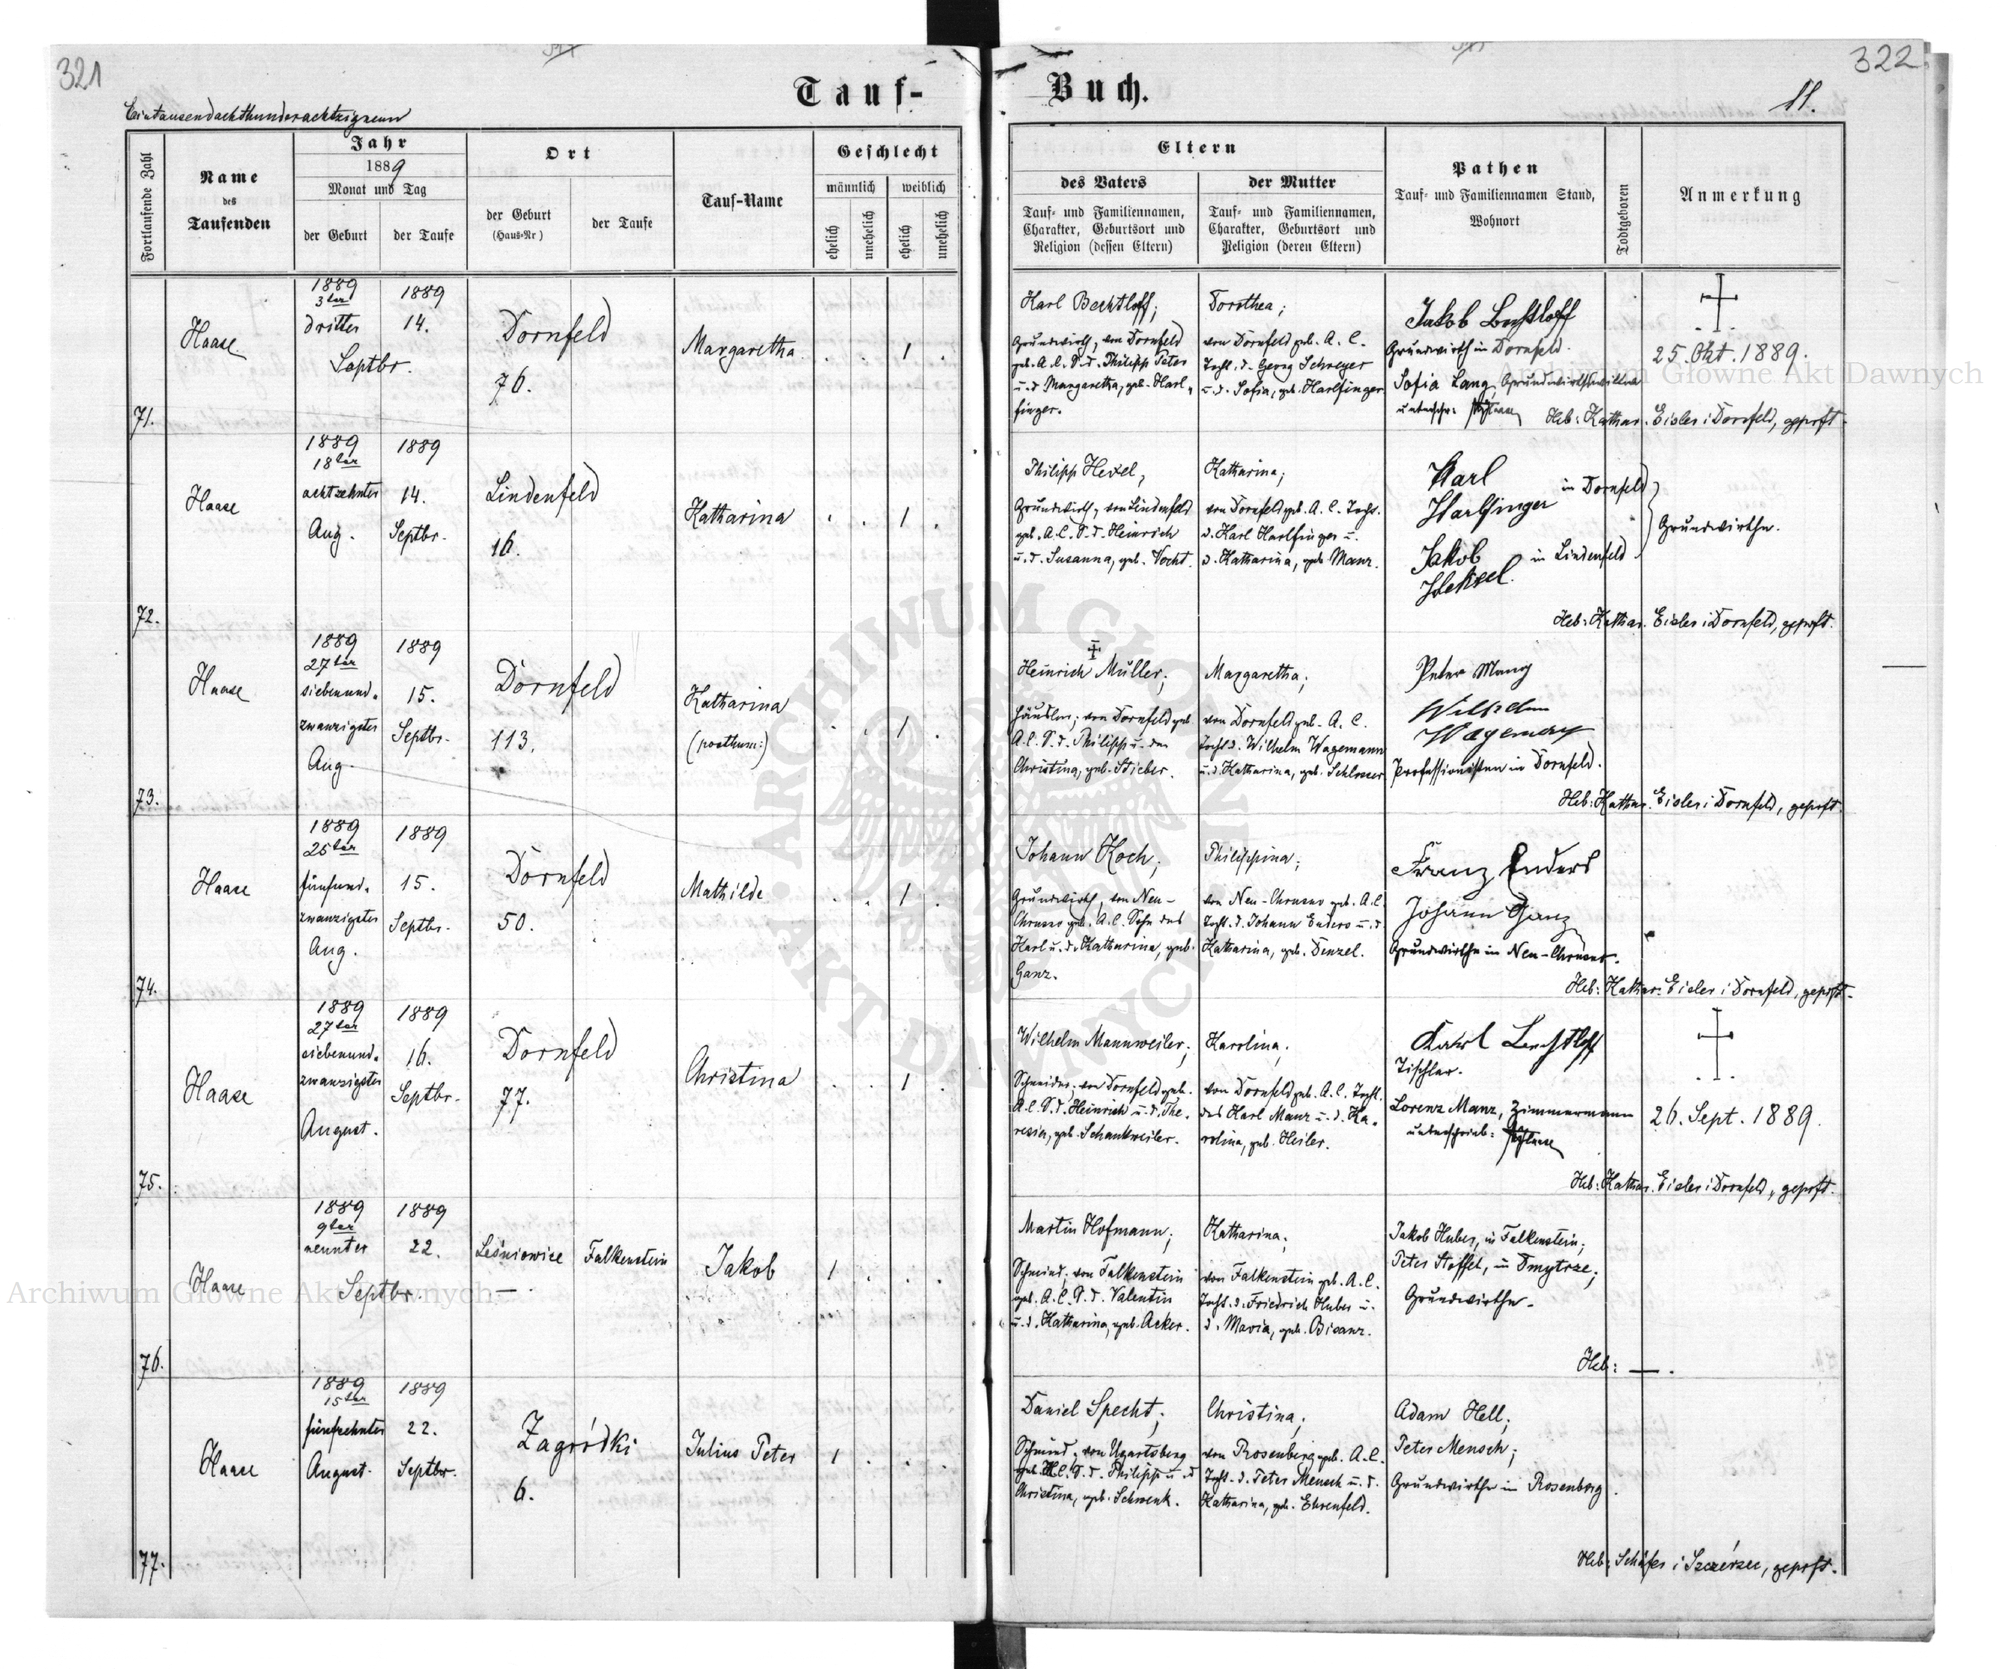 321
322
Tauf-
Buch.
11.
Eintausendachthunderachtzigneun
Fortlaufende Zahl
Name
des
Taufenden
Jahr
1889
Monat und Tag
der Geburt
der Taufe
Ort
der Geburt
(Haus-Nr)
der Taufe
Tauf-Name
Geschlecht
männlich
weiblich
ehelich
unehelich
ehelich
unehelich
Eltern
des Vaters
Tauf- und Familiennamen,
Charakter, Geburtsort und
Religion (dessen Eltern)
der Mutter
Tauf- und Familiennamen,
Charakter, Geburtsort und
Religion (deren Eltern)
Pathen
Tauf- und Familiennamen Stand,
Wohnort
Todtgeboren
Anmerkung
71.
Haase
1889
3ter
dritter
Septbr.
1889
14.
Dornfeld
76.
Margaretha
1
Karl Bechtloff;
Grundwirth, von Dornfeld
geb. A. C. S. d. Philipp Peter
u. d. Margaretha, geb. Harl-
finger.
Dorothea;
von Dornfeld geb. A. C.
Tocht. d. Georg Schreyer
u. d. Sofia, geb. Harlfinger
Jakob Bechtloff
Grundwirth in Dornfeld.
Sofia Lang, Grundwirthswitwe
unterschr: Haase
25. Okt. 1889.
Heb: Kathar. Eisler i Dornfeld, geprft.
72.
Haase
1889
18ter
achtzehnter
Aug.
1889
14.
Septbr.
Lindenfeld
16.
Katharina
1
Philipp Hexel,
Grundwirth, von Lindenfeld
geb. A. C. S. d. Heinrich
u. d. Susanna, geb. Vocht.
Katharina;
von Dornfeld geb. A. C. Tocht.
d. Karl Harlfinger u.
d. Katharina, geb. Manz.
Karl
Harlfinger in Dornfeld
Jakob
Heksel. in Lindenfeld
Grundwirthe.
Heb: Kathar. Eisler i Dornfeld, geprft.
73.
Haase
1889
27ter
siebenund-
zwanzigster
Aug.
1889
15.
Septbr.
Dornfeld
113.
Katharina
(posthum:)
1
Heinrich Müller;
Häusler, von Dornfeld geb.
A. C. S. d. Philipp u. der
Christina, geb. Stieber.
Margaretha;
von Dornfeld geb. A. C.
Tocht. d. Wilhelm Wagemann
u. d. Katharina, geb. Schlosser
Peter Mang
Wilhelm
Wagemann
Professionisten in Dornfeld.
Heb: Kathar. Eisler i Dornfeld, geprft.
74.
Haase
1889
25ter
fünfund-
zwanzigster
Aug.
1889
15.
Septbr.
Dornfeld
50.
Mathilde
1
Johann Koch;
Grundwirth, von Neu-
Chrusno geb. A. C. Sohn des
Karl u. d. Katharina, geb.
Ganz.
Philippina;
von Neu-Chrusno geb. A. C.
Tocht. d. Johann Enders u. d.
Katharina, geb. Denzel.
Franz Enders
Johann Ganz
Grundwirthe in Neu-Chrusno.
Heb: Kathar. Eisler i Dornfeld, geprft.
75.
Haase
1889
27ter
siebenund-
zwanzigster
August.
1889
16.
Septbr.
Dornfeld
77.
Christina
1
Wilhelm Mannweiler;
Schneider, von Dornfeld geb.
A. C. S. d. Heinrich u. d. The-
resia, geb. Schankweiler.
Karolina;
von Dornfeld geb. A. C. Tocht.
des Karl Manz u. d. Ka-
rolina, geb. Heiler.
Karl Bechtloff
Tischler.
Lorenz Manz, Zimmermann
unterschrieb: Haase
26. Sept. 1889.
Heb: Kathar. Eisler i Dornfeld, geprft.
76.
Haase
1889
9ter
neunter
Septbr.
1889
22.
Leśniowice
—
Falkenstein
Jakob
1
Martin Hofmann;
Schmied, von Falkenstein
geb. A. C. S. d. Valentin
u. d. Katharina, geb. Acker.
Katharina;
von Falkenstein geb. A. C.
Tocht. d. Friedrich Huber u.
d. Maria, geb. Bisanz.
Jakob Huber, in Falkenstein;
Peter Stoffel, in Dmytrze;
Grundwirthe.
Heb: —.
77.
Haase
1889
15ter
fünfzehnter
August.
1889
22.
Septbr.
Zagródki
6.
Julius Peter
1
Daniel Specht;
Schmied, von Ugartsberg
geb. H. C. S. d. Philipp u. d
Christina, geb. Schwenk.
Christina;
von Rosenberg geb. A. C.
Tocht. d. Peter Mensch u. d.
Katharina, geb. Ehrenfeld.
Adam Hell;
Peter Mensch;
Grundwirthe in Rosenberg.
Heb: Schäfer i Szczerzec, geprft.
Archiwum Główne Akt Dawnych
Archiwum Główne Akt Dawnych